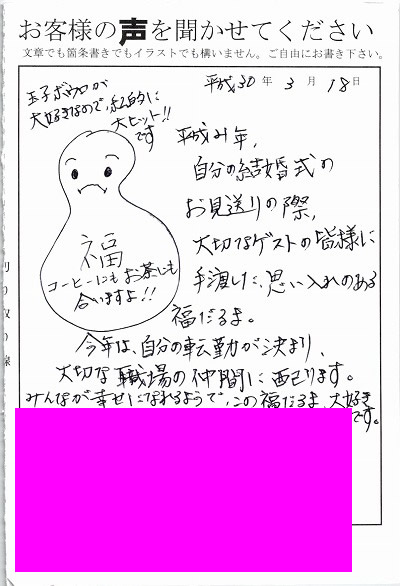 お客様の声を聞かせてください
文章でも箇条書きでもイラストでも構いません。ご自由にお書き下さい。
平成30年3月18日
玉子ボーロが
大好きなので、私的に
大ヒット!!
です
福
コーヒーにもお茶にも
合いますよ!!
平成21年、
自分の結婚式の
お見送りの際、
大切なゲストの皆様に
手渡した、思い入れのある
福だるま。
今年は、自分の転勤が決まり、
大切な職場の仲間に配ります。
みんなが幸せになれるようで、この福だるま、大好き
です。
切り取り線